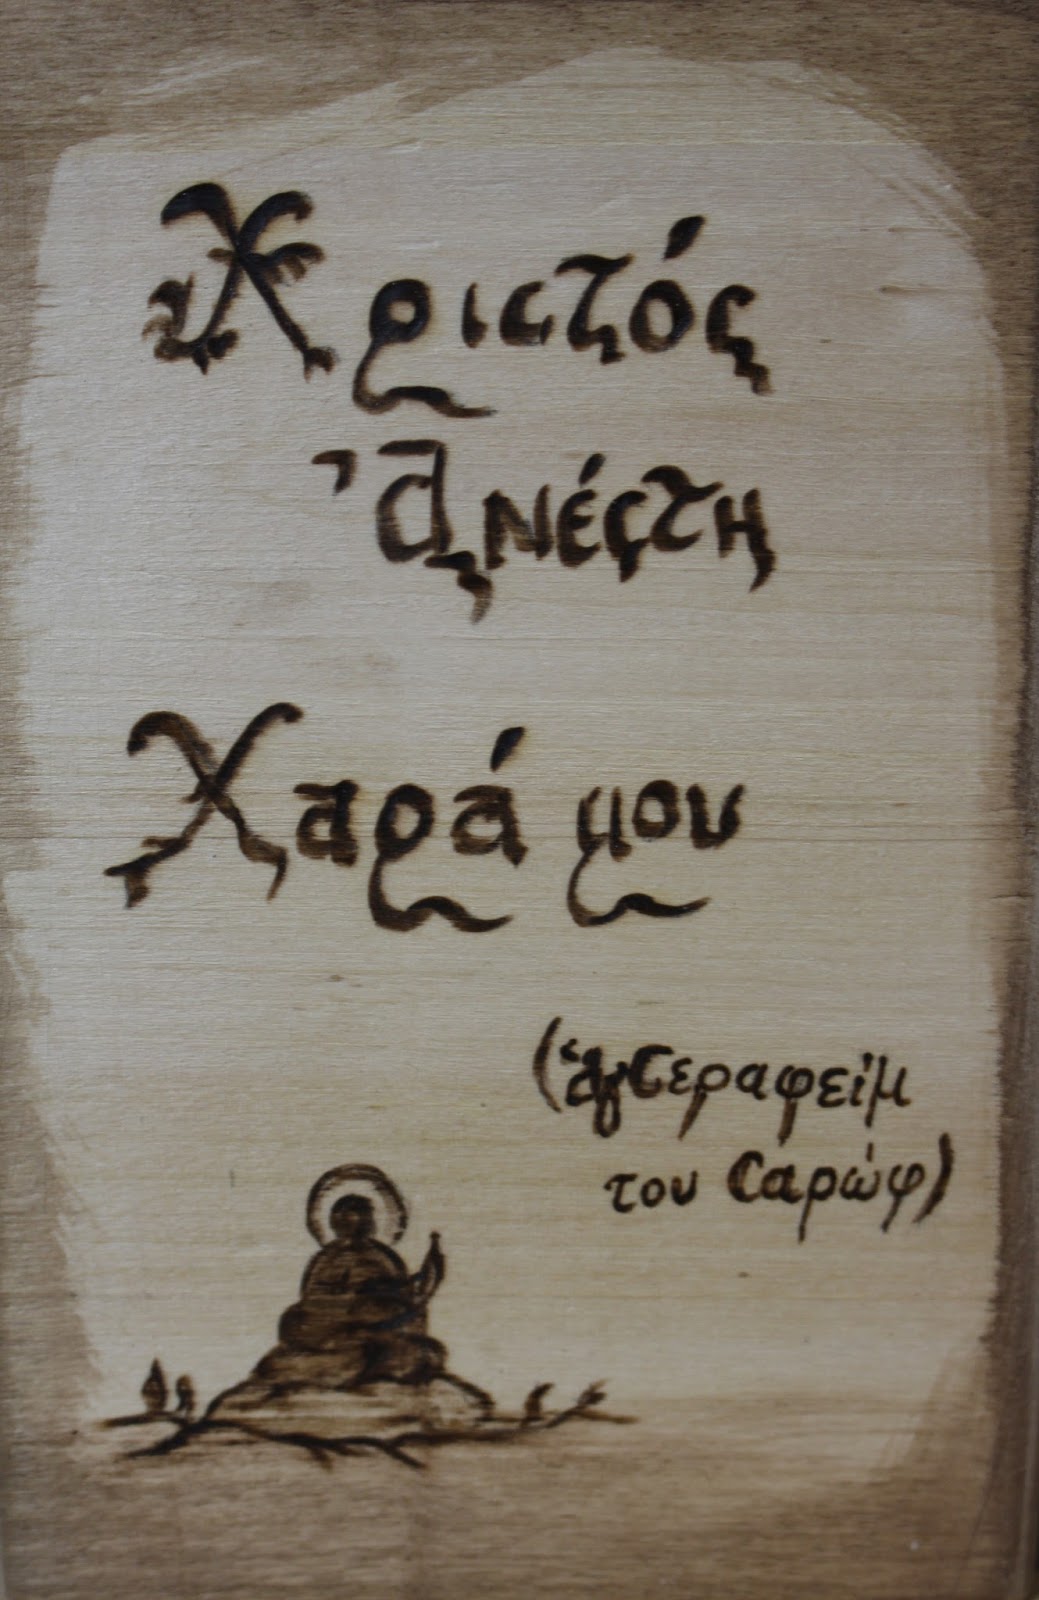 Χριστός
Ἀνέστη
Χαρά μου
(ἁγ Σεραφείμ
του Σαρώφ)